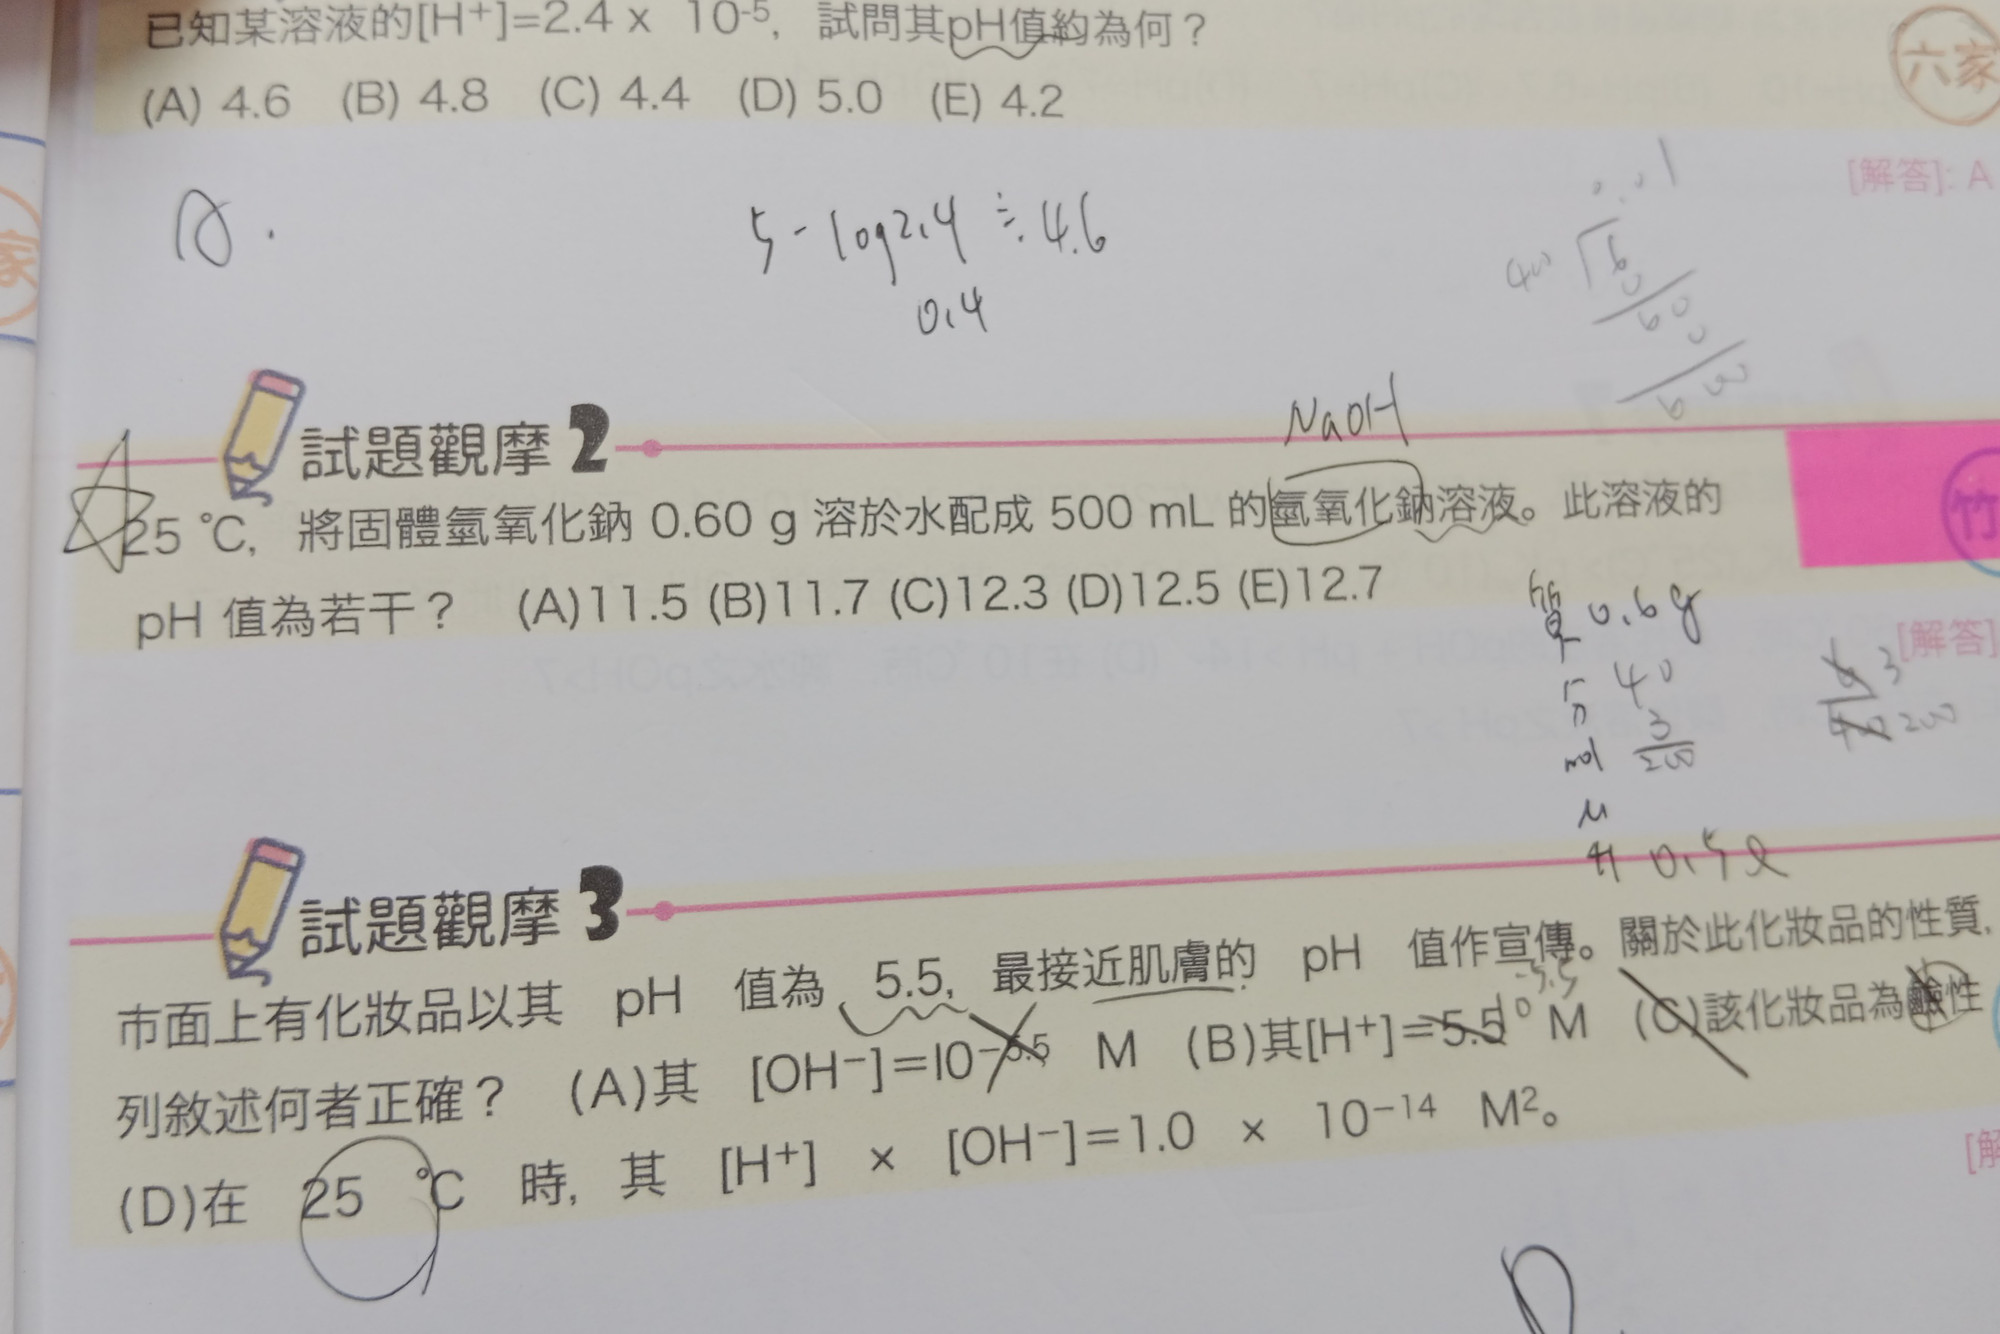 已知某溶液的[H⁺]=2.4 x 10⁻⁵, 試問其pH值約為何？
六家
(A) 4.6 (B) 4.8 (C) 4.4 (D) 5.0 (E) 4.2
[解答]: A
A.
5 - log2.4 ≒ 4.6
0.4
家
NaOH
試題觀摩 2
25 °C, 將固體氫氧化鈉 0.60 g 溶於水配成 500 mL 的氫氧化鈉溶液。此溶液的
竹
pH 值為若干？ (A)11.5 (B)11.7 (C)12.3 (D)12.5 (E)12.7
[解答]
質 0.6g
分 40
mol 3/200
M
升 0.5 l
試題觀摩 3
市面上有化妝品以其 pH 值為 5.5, 最接近肌膚的 pH 值作宣傳。關於此化妝品的性質,
列敘述何者正確？ (A)其 [OH⁻]=10⁻⁵·⁵ M (B)其[H⁺]=5.5 M (C)該化妝品為鹼性
10⁻⁵·⁵
(D)在 25 °C 時, 其 [H⁺] × [OH⁻]=1.0 × 10⁻¹⁴ M²。
[解
D